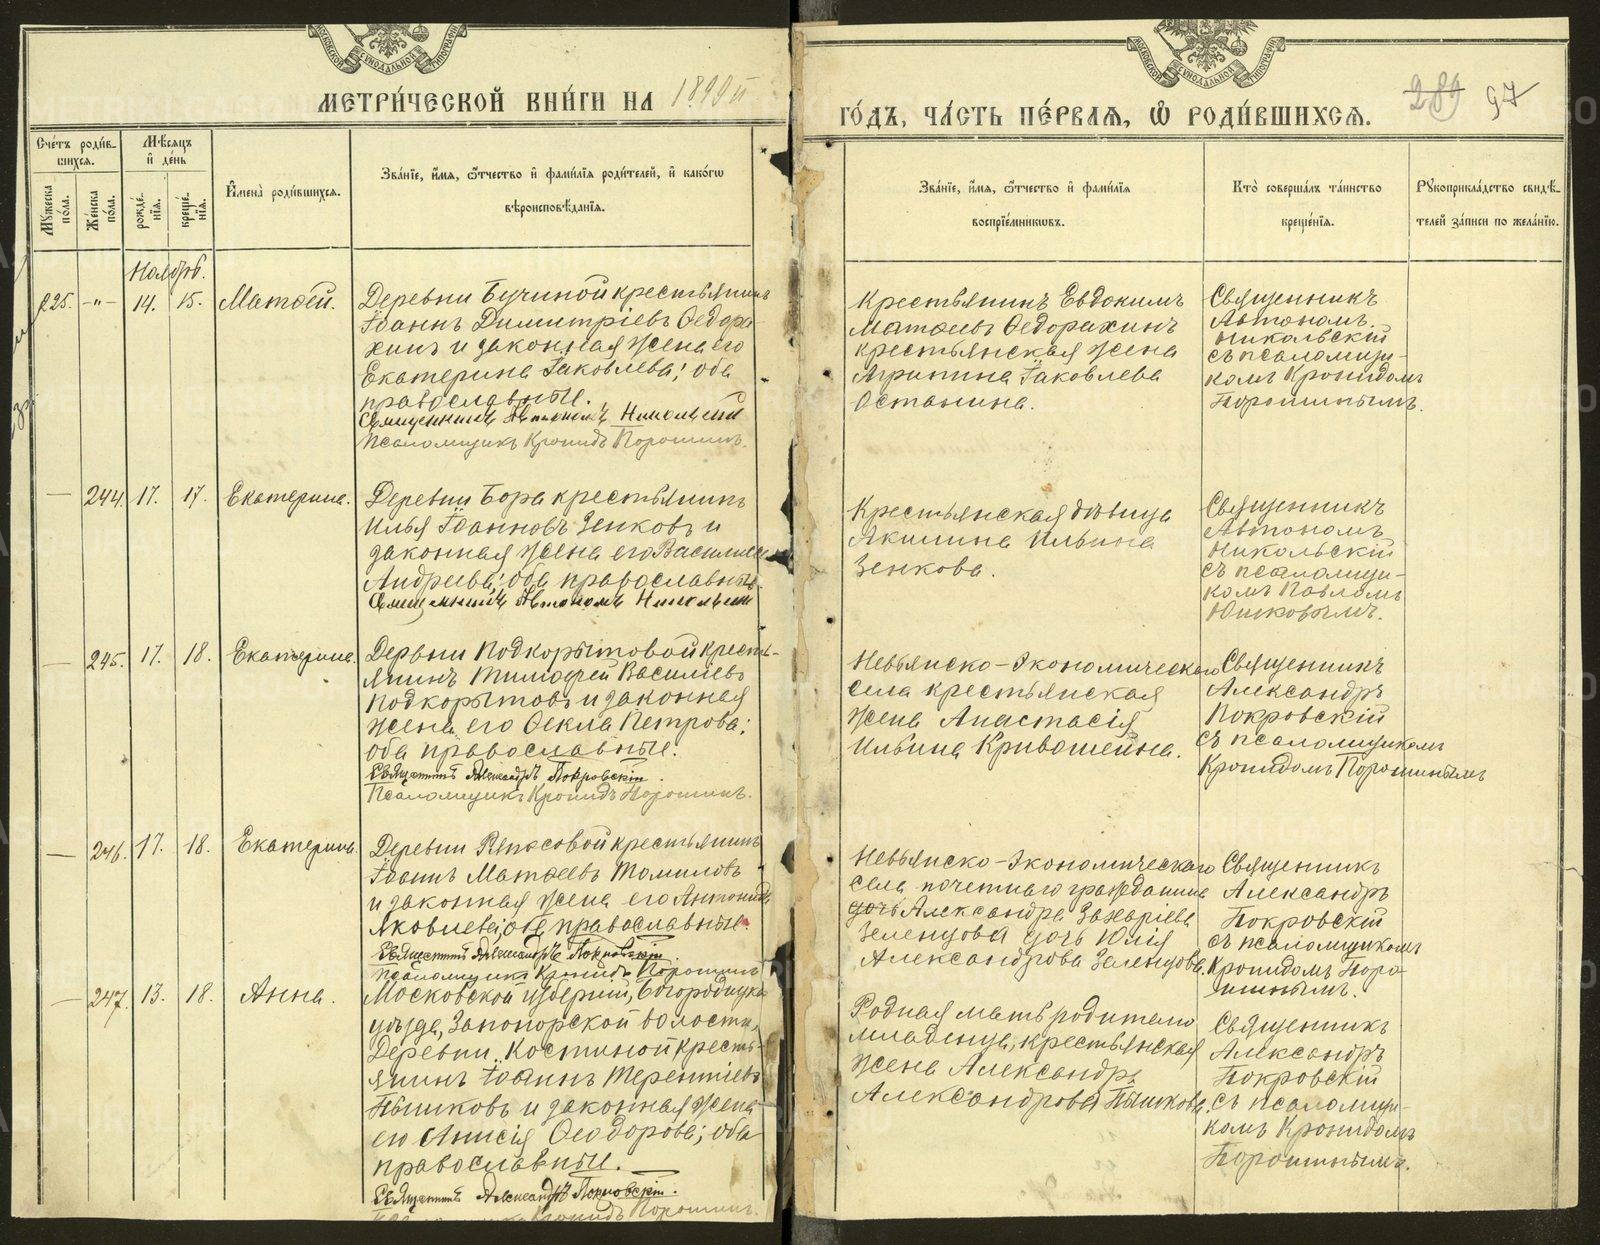 МЕТРИ́ЧЕСКОЙ КНИ́ГИ НА 1899
ГО́ДЪ, ЧА́СТЬ ПЕ́РВАЯ, Ѡ РОДИ́ВШИХСЯ.
289 97
Сче́тъ роди́в-
шихся.
Мѣ́сяцъ
и҆ де́нь
Му́жеска
по́ла.
Же́нска
по́ла.
рожде́-
нїѧ.
креще́-
нїѧ.
И҆мена̀ роди́вшихсѧ.
Зва́нїе, и҆́мѧ, ѻ҆́тчество и҆ фами́лїѧ роди́телей, и҆ како́гѡ
вѣроисповѣ́данїѧ.
Зва́нїе, и҆́мѧ, ѻ҆́тчество и҆ фами́лїѧ
воспрїе́мникѡвъ.
Кто̀ соверша́лъ та́инство
креще́нїѧ.
Рꙋкоприкла́дство свидѣ́-
телей за́писи по жела́нїю.
Ноябрь.
225. -"- 14. 15. Матѳей.
Деревни Бучиной крестьянинъ
Іоаннъ Димитріевъ Ѳедора-
хинъ и законная жена его
Екатерина Іаковлева; оба
православные.
Священникъ Автономъ Никольскій
Псаломщикъ Кронидъ Порошинъ.
Крестьянинъ Евдокимъ
Матѳеевъ Ѳедорахинъ
крестьянская жена
Агрипина Іаковлева
Останина.
Священникъ
Автономъ
Никольскій
съ псаломщи-
комъ Кронидомъ
Порошинымъ.
— 244. 17. 17. Екатерина.
Деревни Бора крестьянинъ
Илья Іоанновъ Зенковъ и
законная жена его Василиса
Андреева; оба православные.
Священникъ Автономъ Никольскій
Крестьянская дѣвица
Акилина Ильина
Зенкова.
Священникъ
Автономъ
Никольскій
съ псаломщи-
комъ Павломъ
Юшковымъ.
— 245. 17. 18. Екатерина.
Деревни Подкорытовой кресть-
янинъ Тимофей Василіевъ
Подкорытовъ и законная
жена его Ѳекла Петрова;
оба православные.
Священникъ Александръ Покровскій.
Псаломщикъ Кронидъ Порошинъ.
Невьянско-Экономическаго
села крестьянская
жена Анастасія
Ильина Кривошеина.
Священникъ
Александръ
Покровскій
съ псаломщикомъ
Кронидомъ Порошинымъ
— 246. 17. 18. Екатерина.
Деревни Рѣпосовой крестьянинъ
Іоаннъ Матѳеевъ Томиловъ
и законная жена его Антонида
Яковлева; оба православные.
Священникъ Александръ Покровскій.
Псаломщикъ Кронидъ Порошинъ
Невьянско-Экономическаго
села почетнаго гражданина
дочь Александра Захаріева
Зеленцова дочь Юлія
Александрова Зеленцова.
Священникъ
Александръ
Покровскій
съ псаломщикомъ
Кронидомъ Поро-
шинымъ.
— 247. 13. 18. Анна.
Московской губерніи, Богородицкаго
уѣзда, Запонорской волости,
Деревни Костиной кресть-
янинъ Іоаннъ Терентіевъ
Пышковъ и законная жена
его Анисія Ѳеодорова; оба
православные.
Священникъ Александръ Покровскій.
Псаломщикъ Кронидъ Порошинъ.
Родная мать родителю
младенца, крестьянская
жена Александра
Александрова Пышкова.
Священникъ
Александръ
Покровскій
съ псаломщи-
комъ Кронидомъ
Порошинымъ.